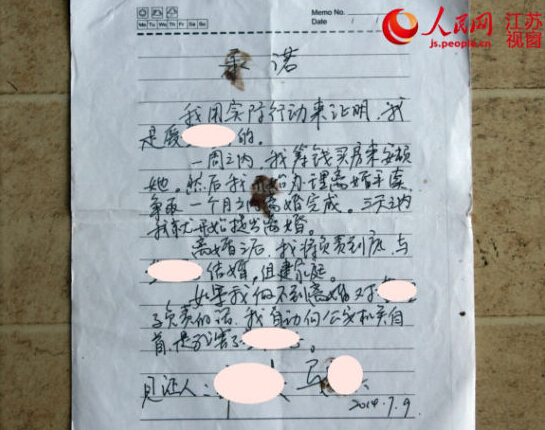 Memo No.
Date
Mo Tu We Th Fr Sa Su
人民网 江苏视窗
js.people.cn
承诺
我用实际行动来证明,我
是爱 的。
一周之内,我筹钱买房来安顿
她。然后我 办理离婚手续,
争取一个月之内离婚完成。三天之内
我就开始提出离婚。
离婚之后,我将负责到底,与
结婚,组建家庭。
如果我做不到离婚对
负责的话,我自动向公安机关自
首,是我害了 。
见证人:
2014.7.9.